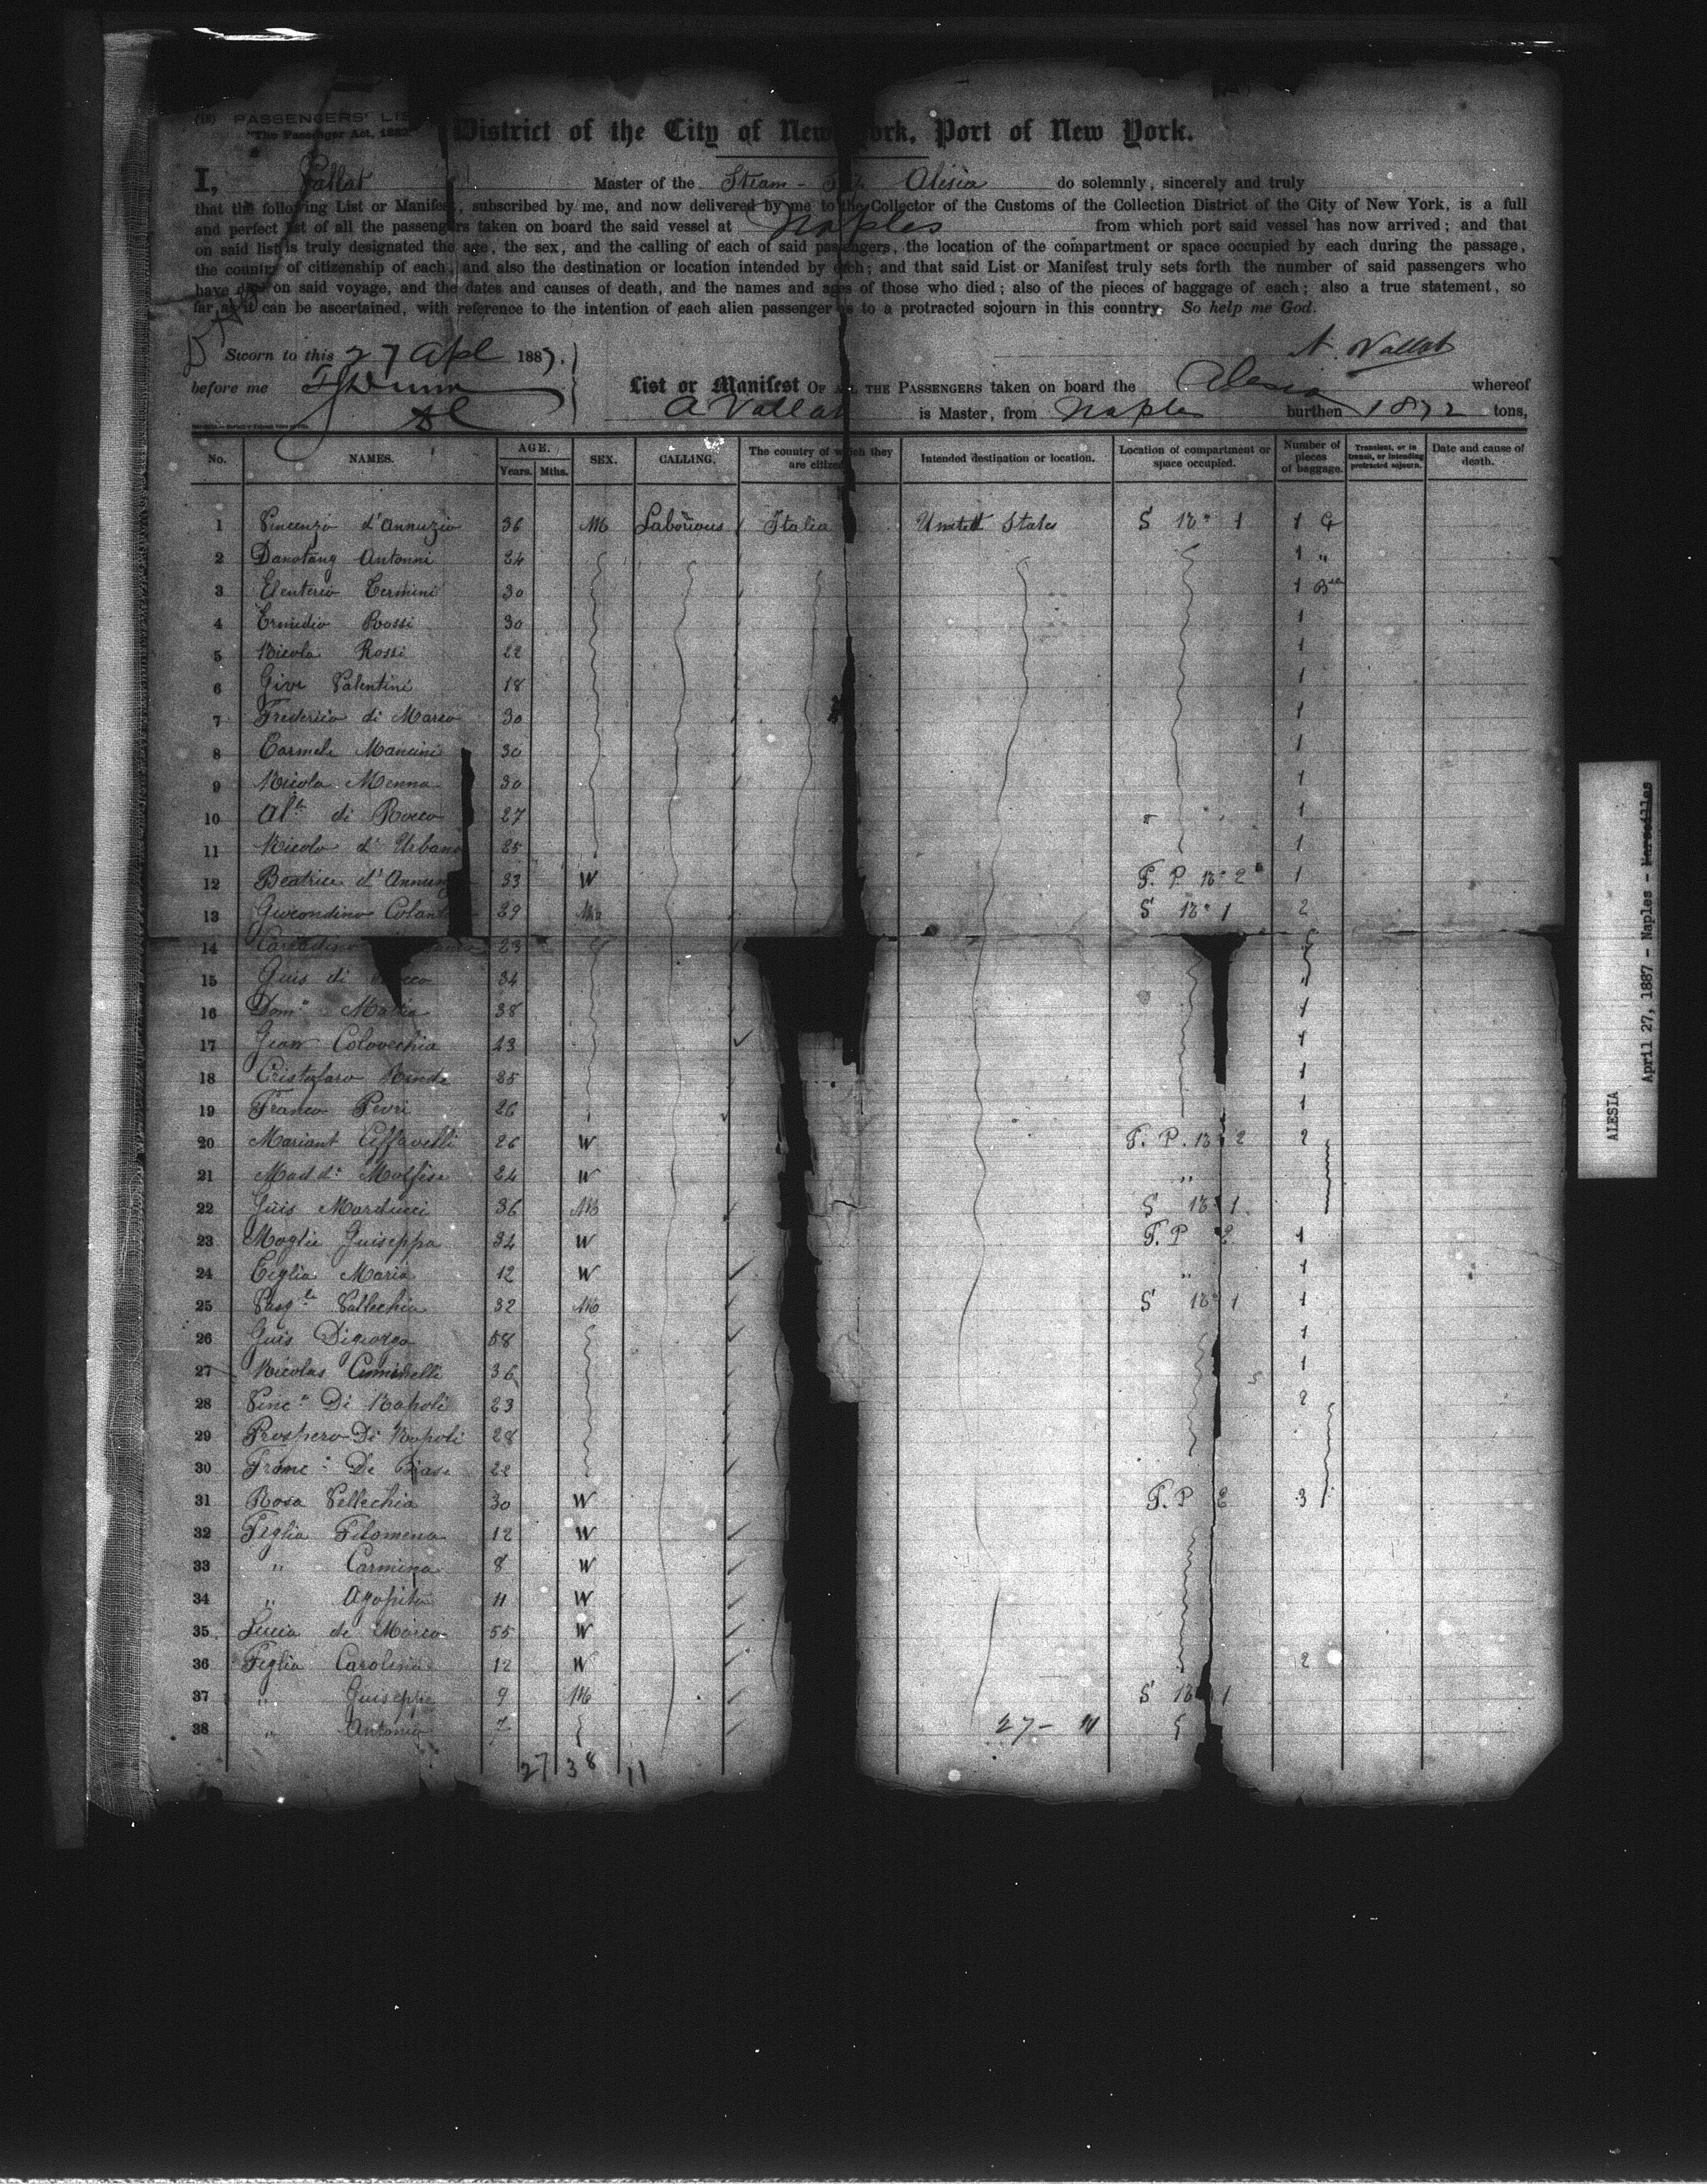 (18) PASSENGERS' LIS
"The Passenger Act, 1882"
District of the City of New York, Port of New York.
I, Vallat Master of the Steam - Alesia do solemnly, sincerely and truly
that the following List or Manifest, subscribed by me, and now delivered by me to the Collector of the Customs of the Collection District of the City of New York, is a full
and perfect list of all the passengers taken on board the said vessel at Naples from which port said vessel has now arrived; and that
on said list is truly designated the age, the sex, and the calling of each of said passengers, the location of the compartment or space occupied by each during the passage,
the country of citizenship of each, and also the destination or location intended by each; and that said List or Manifest truly sets forth the number of said passengers who
have died on said voyage, and the dates and causes of death, and the names and ages of those who died; also of the pieces of baggage of each; also a true statement, so
far as it can be ascertained, with reference to the intention of each alien passenger as to a protracted sojourn in this country. So help me God.
A. Vallat
Sworn to this 27 Apl 1887.
before me
List or Manifest OF ALL THE PASSENGERS taken on board the Alesia whereof
A Vallat is Master, from Naples burthen 1872 tons,
No. NAMES. AGE. Years. Mths. SEX. CALLING. The country of which they are citizens. Intended destination or location. Location of compartment or space occupied. Number of pieces of baggage. Transient, or in transit, or intending protracted sojourn. Date and cause of death.
1 Vincenzo d'Annuzio 36 M Italia United States S No 1 1
2 Antonni 24 1 "
3 Eleuterio Termini 30 1
4 Ermidio Rossi 30 1
5 Nicola Rossi 22 1
6 Giov Valentini 18 1
7 Frederico di Marco 30 1
8 Carmela Mancini 30 1
9 Nicola Menna 30 1
10 di Rocco 27 1
11 Nicola d'Urbano 25 1
12 Beatrice d'Annunz 33 W F. P. No 2 1
13 Giocondino Colant 29 M S No 1 2
14 23
15 Guis di Rocco 34 "
16 Domo Mattia 38 1
17 Gian Colovechia 23 1
18 Cristofaro 25 1
19 Franco 26 1
20 Mariant 26 W F. P. No 2 2
21 Madda Molfese 24 W "
22 Guis Marducci 36 M S No 1
23 Moglie Guiseppa 34 W F. P 2 1
24 Figlia Maria 12 W " 1
25 Pasqle Vellechia 32 M S No 1 1
26 Guis Digiorgo 58 1
27 Nicolas 36 1
28 Vinco Di Napoli 23 2
29 Prospero Di Napoli 28
30 Franco De Biase 22
31 Rosa Vellechia 30 W F. P 2 3
32 Figlia Filomena 12 W
33 " Carmina 8 W
34 " Agopita 11 W
35 Lucia de Marco 55 W
36 Figlia Carolina 12 W 2
37 " Guiseppe 9 M S No 1
38 " Antonio 7 27 - 11
27 38 11
ALESIA
April 27, 1887 - Naples - Marseilles